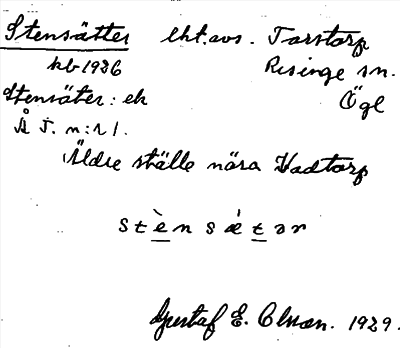 Stensätter lht. avs. Torstorp
hb 1926 Risinge sn.
Stensäter: ek Ögl
Å J. n:r 1.
Äldre ställe nära Vadtorp
stènsǽtər
Gustaf E. Olsson. 1929.